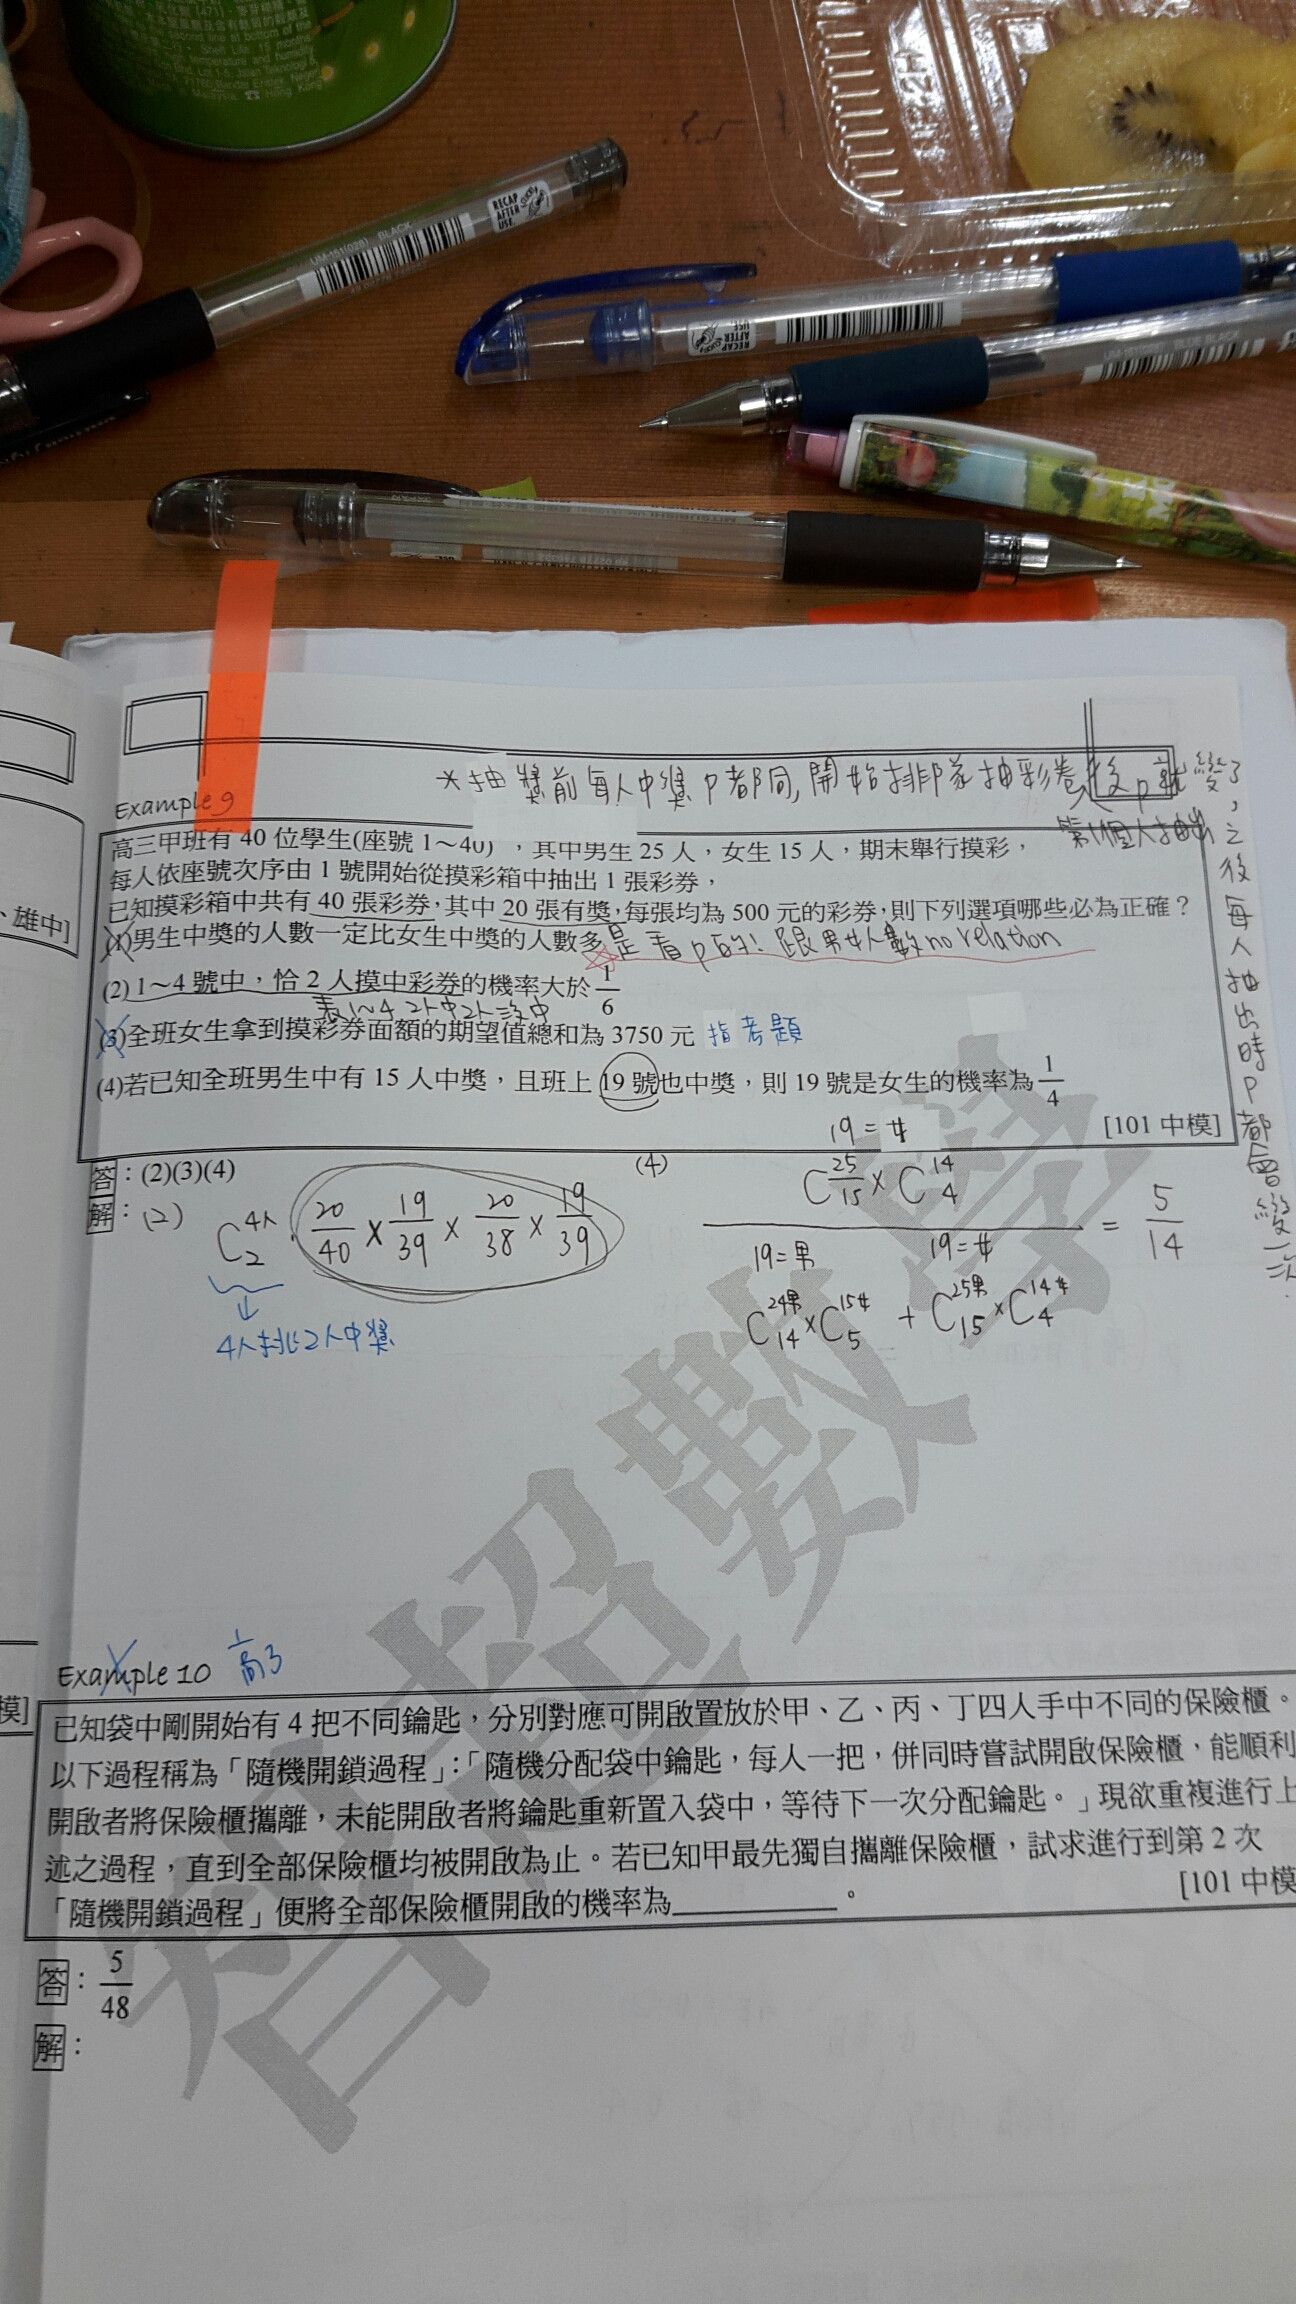 second line at bottom of the
Shelf Life: 15 months
temperature and humidity
Malaysia. ☎ Hong Kong
RECAP
AFTER
USE.
UM-151(028) BLACK
RECAP
AFTER
USE
*抽獎前每人中獎P都同,開始排隊抽彩卷後P就變了,之後每人抽出時P都會變一次.
第1個人抽出
Example 9
高三甲班有 40 位學生(座號 1～40)，其中男生 25 人，女生 15 人，期末舉行摸彩，
每人依座號次序由 1 號開始從摸彩箱中抽出 1 張彩券，
已知摸彩箱中共有 40 張彩券，其中 20 張有獎，每張均為 500 元的彩券，則下列選項哪些必為正確？
、雄中]
(1)男生中獎的人數一定比女生中獎的人數多 是看P的! 跟男女人數no relation
(2) 1～4 號中，恰 2 人摸中彩券的機率大於 1/6
表1~4 2人中2人沒中
(3)全班女生拿到摸彩券面額的期望值總和為 3750 元 指考題
(4)若已知全班男生中有 15 人中獎，且班上 19 號也中獎，則 19 號是女生的機率為 1/4
[101 中模]
答：(2)(3)(4)
解：(2) C 4人 2 · 20/40 × 19/39 × 20/38 × 19/39
4人挑2人中獎
(4)
19=女
C 25 15 × C 14 4
= 5/14
19=男 19=女
C 24男 14 × C 15女 5 + C 25男 15 × C 14女 4
Example 10 高3
模]
已知袋中剛開始有 4 把不同鑰匙，分別對應可開啟置放於甲、乙、丙、丁四人手中不同的保險櫃。
以下過程稱為「隨機開鎖過程」：「隨機分配袋中鑰匙，每人一把，併同時嘗試開啟保險櫃，能順利
開啟者將保險櫃攜離，未能開啟者將鑰匙重新置入袋中，等待下一次分配鑰匙。」現欲重複進行上
述之過程，直到全部保險櫃均被開啟為止。若已知甲最先獨自攜離保險櫃，試求進行到第 2 次
「隨機開鎖過程」便將全部保險櫃開啟的機率為＿＿＿＿＿。
[101 中模
答：5/48
解：
智超數學